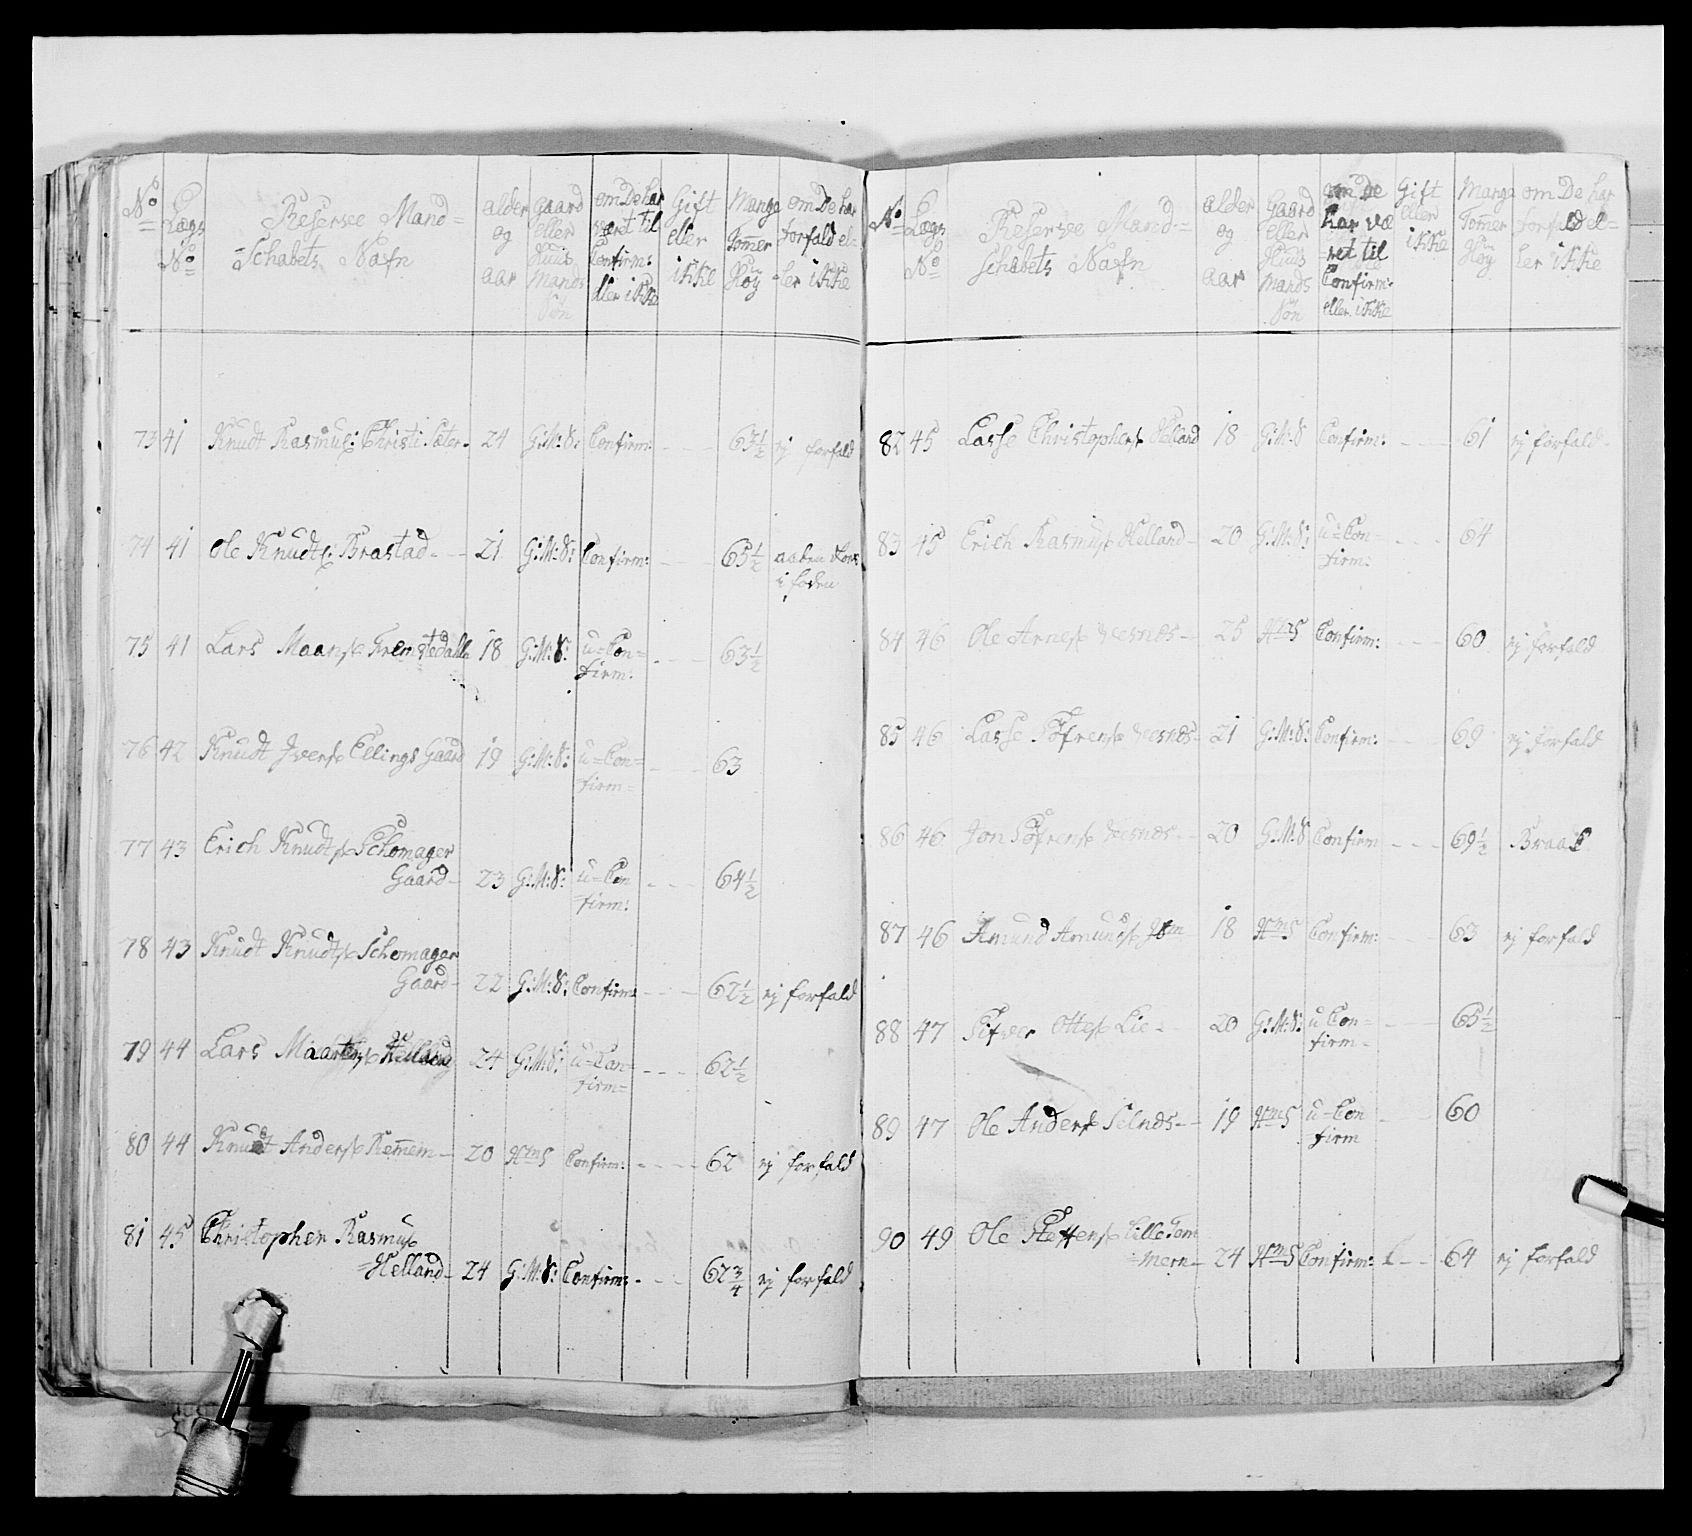 No Lægs No Reservee Mandschabets Nafn alder og aar Gaard eller Huus Mands Søn om De har været til Confirm: eller ikke Gift eller ikke Mange Tomer Høy om De har forfald eller ikke
73 41 Knudt Rasmus: Christi Sæter 24 G:M:S: Confirm: - - - 63½ ej forfald
74 41 Ole Knudts: Brastad 21 G:M:S: Confirm: - - - 65½ aaben
i foden
75 41 Lars Maans: 18 G:M:S: u=Con=
firm: - - - 63½
76 42 Knudt Ivers: Ellings Gaard 19 G:M:S: u=Con=
firm= - - - 63
77 43 Erich Knudts: Schomager
Gaard 23 G:M:S: u=Con
firm: - - - 64½
78 43 Knudt Knudts: Schomager
Gaard 22 G:M:S: Confirm: - - - 62½ ej forfald
79 44 Lars 24 G:M:S: u=Con=
firm= - - - 62½
80 44 Knudt Anders: Remem 20 HmS Confirm: - - - 62 ej forfald
81 45 Christopher Rasmus:
=Helland 24 G:M:S: Confirm: - - - 62¾ ej forfald
No Lægs No Reservee Mandschabets Nafn alder og aar Gaard eller Huus Mands Søn om De har været til Confirm: eller ikke Gift eller ikke Mange Tomer Høy om De har forfald eller ikke
82 45 Lasse Christophers: Helland 18 G:M:S Confirm: - - - 61 ej forfald
83 45 Erich Rasmus: Helland 20 G:M:S: u=Con=
firm: - - - 64
84 46 Ole Arnes: Vesnæs 25 HmS Confirm: - - - 60 ej forfald
85 46 Lasse Sifrens: Vesnæs 21 G:M:S: Confirm: - - - 69 ej forfald
86 46 Jon Sifrens: Vesnæs 20 G:M:S Confirm - - - 69½ Braak
87 46 Amund Amunds: 18 HmS Confirm: - - 63 ej forfald
88 47 Sifver Ottes: Lie 20 G:M:S: u=Con=
firm= - - 65½
89 47 Ole Anders: Selnæs 19 HmS u=Con
firm - 60
90 49 Ole Lille Tom
=mern 24 HmS Confirm: - - 64 ej forfald